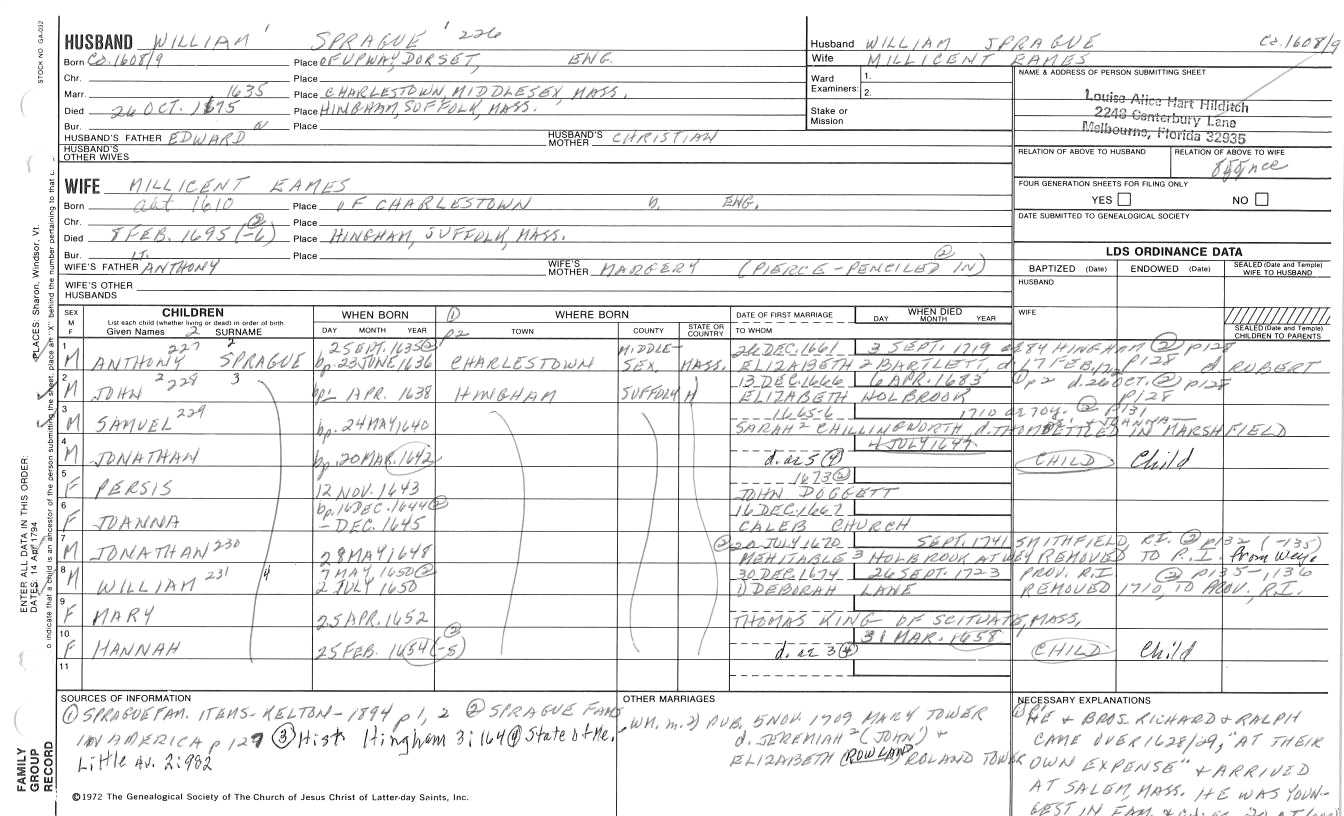 STOCK NO. GA-032
HUSBAND WILLIAM' SPRAGUE ' 226
Born Ca. 1608/9 Place OF UPWAY, DORSET, ENG.
Chr. Place
Marr. 1635 Place CHARLESTOWN, MIDDLESEX, MASS.
Died 26 OCT. 1675 Place HINGHAM, SUFFOLK, MASS.
Bur. Place
HUSBAND'S FATHER EDWARD HUSBAND'S MOTHER CHRISTIAN
HUSBAND'S OTHER WIVES
Husband WILLIAM SPRAGUE Ca. 1608/9
Wife MILLICENT EAMES
Ward Examiners: 1.
2.
Stake or Mission
NAME & ADDRESS OF PERSON SUBMITTING SHEET
Louise Alice Hart Hilditch
2248 Canterbury Lane
Melbourne, Florida 32935
RELATION OF ABOVE TO HUSBAND RELATION OF ABOVE TO WIFE
FOUR GENERATION SHEETS FOR FILING ONLY
YES NO
DATE SUBMITTED TO GENEALOGICAL SOCIETY
WIFE MILLICENT EAMES
Born abt 1610 Place OF CHARLESTOWN b. ENG.
Chr. Place
Died 8 FEB. 1695 (-6) ② Place HINGHAM, SUFFOLK, MASS.
Bur. Place
WIFE'S FATHER LT. ANTHONY WIFE'S MOTHER MARGERY (PIERCE - PENCILED IN) ②
WIFE'S OTHER HUSBANDS
LDS ORDINANCE DATA
BAPTIZED (Date) ENDOWED (Date) SEALED (Date and Temple) WIFE TO HUSBAND
HUSBAND
WIFE
SEALED (Date and Temple) CHILDREN TO PARENTS
SEX M F CHILDREN List each child (whether living or dead) in order of birth Given Names SURNAME
WHEN BORN DAY MONTH YEAR
① P2 WHERE BORN TOWN COUNTY STATE OR COUNTRY
DATE OF FIRST MARRIAGE TO WHOM
WHEN DIED DAY MONTH YEAR
1 M ANTHONY 227 SPRAGUE 2 2 SEPT. 1635 ② bp. 23 JUNE 1636 CHARLESTOWN MIDDLE-SEX, MASS. 26 DEC. 1661 3 SEPT. 1719 ae 84 HINGHAM ② p128
ELIZABETH 2 BARTLETT, d. ROBERT
2 M JOHN 2 228 3 bp. 1 APR. 1638 HINGHAM SUFFOLK 13 DEC. 1666 6 APR. 1683 ① p2 d. 26 OCT. ② p128
ELIZABETH HOLBROOK
3 M SAMUEL 229 bp. 24 MAY 1640 1665-6 1710 ae 70y. ② p131
SARAH 2 CHILLINGWORTH, SETTLED IN MARSHFIELD
4 M JONATHAN bp. 20 MAR. 1642 4 JULY 1647. d. ae 5 ④ CHILD Child
5 F PERSIS 12 NOV. 1643 1673 ② JOHN DOGGETT
6 F JOANNA bp. 16 DEC. 1644 ② - DEC. 1645 16 DEC. 1667 CALEB CHURCH
7 M JONATHAN 230 28 MAY 1648 ② 20 JULY 1670 SEPT. 1741 SMITHFIELD R.I. ② p132 (-135)
MEHITABLE 3 HOLBROOK AT WEY REMOVED TO R.I. from Wey.
8 M WILLIAM 231 4 7 MAY 1650 ② 2 JULY 1650 30 DEC. 1674 26 SEPT. 1723 PROV. R.I ② p135-, 136
① DEBORAH LANE REMOVED 1710, TO PROV., R.I.
9 F MARY 25 APR. 1652 THOMAS KING OF SCITUATE, MASS.
10 F HANNAH 25 FEB. 1654 (-5) ③ 31 MAR. 1658 d. ae 3 ④ CHILD Child
11
SOURCES OF INFORMATION
① SPRAGUE FAM. ITEMS - KELTON - 1894 p 1, 2 ② SPRAGUE FAMS
IN AMERICA p 127 ③ Hist. Hingham 3:164 ④ State of Me.
Little Av. 2:982
OTHER MARRIAGES
WM. m. 2) PUB. 5 NOV. 1709 MARY TOWER
d. JEREMIAH 2 (JOHN') &
ELIZABETH (ROWLAND) ROLAND TOWER
NECESSARY EXPLANATIONS
① p1 HE & BROS. RICHARD & RALPH
CAME OVER 1628/29, "AT THEIR
OWN EXPENSE" & ARRIVED
AT SALEM, MASS. HE WAS YOUN-
GEST IN FAM.
©1972 The Genealogical Society of The Church of Jesus Christ of Latter-day Saints, Inc.
FAMILY GROUP RECORD
ENTER ALL DATA IN THIS ORDER:
DATES: 14 Apr 1794
PLACES: Sharon, Windsor, Vt.
o indicate that a child is an ancestor of the person submitting the sheet, place an "X" behind the number pertaining to that c